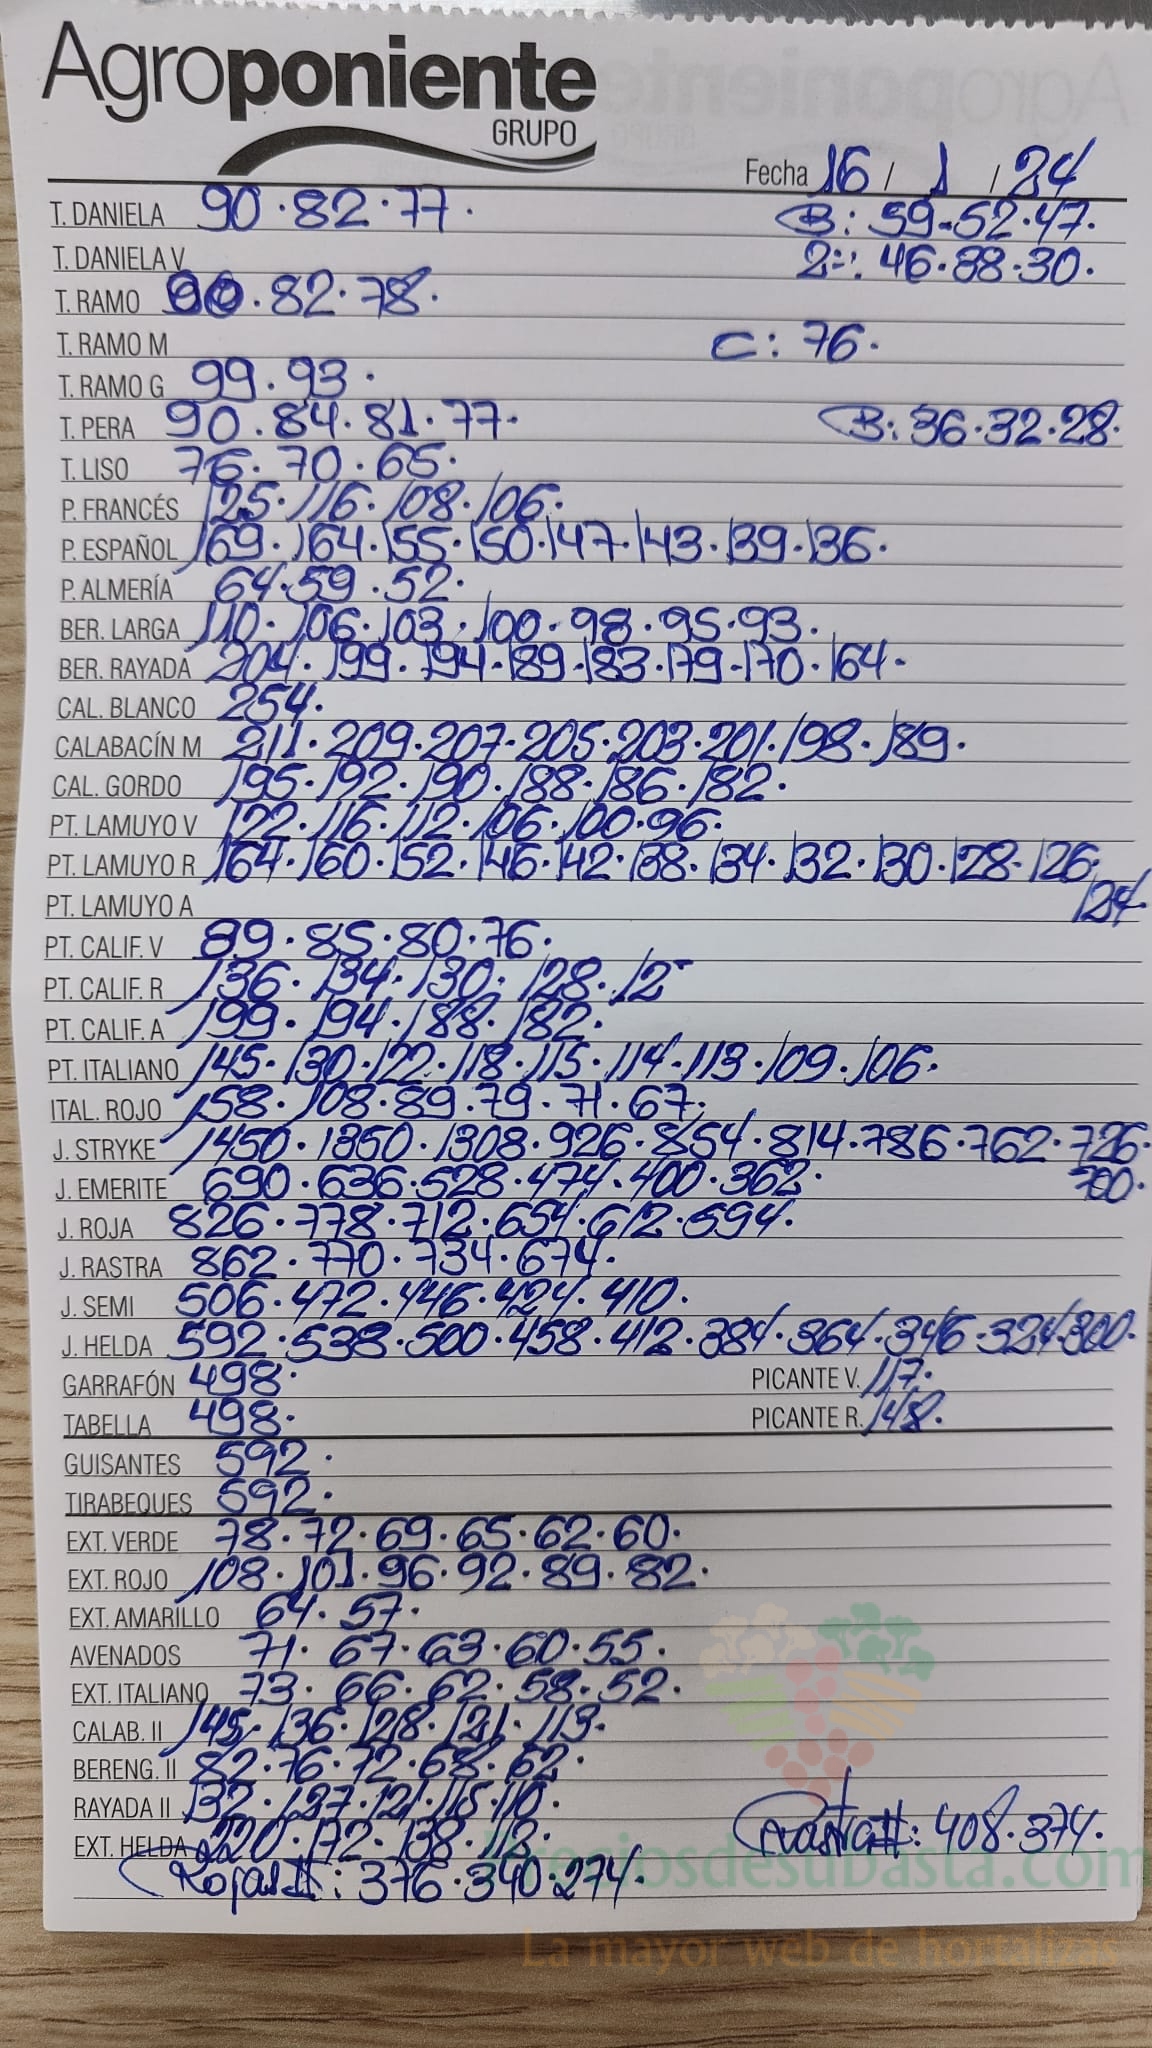 Agroponiente
GRUPO
Fecha 16 / 1 / 24
T. DANIELA 90.82.77. B: 59-52.47.
T. DANIELA V 2ª: 46.38.30.
T. RAMO 90.82.78.
T. RAMO M C: 76.
T. RAMO G 99.93.
T. PERA 90.84.81.77. B: 36.32.28.
T. LISO 76.70.65.
P. FRANCÉS 125.116.108.106.
P. ESPAÑOL 169.164.155.150.147.143.139.136.
P. ALMERÍA 64.59.52.
BER. LARGA 110.106.103.100.98.95.93.
BER. RAYADA 204.199.194-189-183.179-170.164.
CAL. BLANCO 254.
CALABACÍN M 211.209.207-205.203.201.198.189.
CAL. GORDO 195.192.190.188.186.182.
PT. LAMUYO V 122.116.112.106.100.96.
PT. LAMUYO R 164.160.152.146.142.138.134.132.130.128.126.
PT. LAMUYO A 124.
PT. CALIF. V 89.85.80.76.
PT. CALIF. R 136.134.130.128.
PT. CALIF. A 199.194.188.182.
PT. ITALIANO 145.130.122.118.115.114.113.109.106.
ITAL. ROJO 158.108.89.79.71.67.
J. STRYKE 1450.1350.1308.926.854.814.786.762.726.
J. EMERITE 690.636.528.474.400.362. 700.
J. ROJA 826.778.712.654.612.594.
J. RASTRA 862.770.734.674.
J. SEMI 506.472.446.424.410.
J. HELDA 592.538.500.458.412.384.364.346.324.300.
GARRAFÓN 498. PICANTE V. 117.
TABELLA 498. PICANTE R. 148.
GUISANTES 592.
TIRABEQUES 592.
EXT. VERDE 78.72.69.65.62.60.
EXT. ROJO 108.101.96.92.89.82.
EXT. AMARILLO 64.57.
AVENADOS 71.67.63.60.55.
EXT. ITALIANO 73.66.62.58.52.
CALAB. II 145.136.128.121.113.
BERENG. II 82.76.72.68.62.
RAYADA II 132.127.121.115.110.
EXT. HELDA 220.172.138.113. Rastra II: 408.374.
Rojas II: 376.340.274.
Preciosdesubasta.com
La mayor web de hortalizas